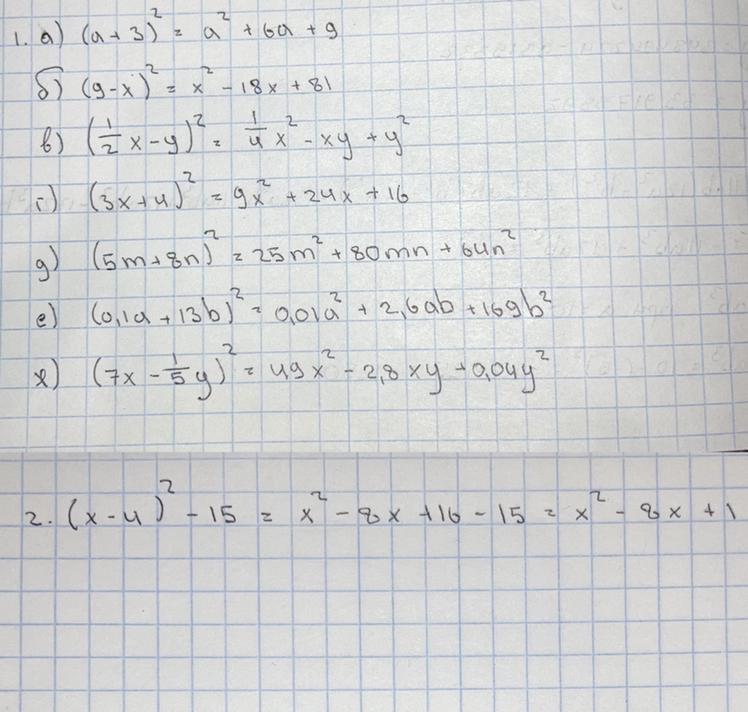 1. а) (a+3)² = a² + 6a + 9
б) (9-x)² = x² - 18x + 81
в) (1/2 x - y)² = 1/4 x² - xy + y²
г) (3x+4)² = 9x² + 24x + 16
д) (5m+8n)² = 25m² + 80mn + 64n²
е) (0,1a + 13b)² = 0,01a² + 2,6ab + 169b²
ж) (7x - 1/5 y)² = 49x² - 2,8xy + 0,04y²
2. (x-4)² - 15 = x² - 8x + 16 - 15 = x² - 8x + 1